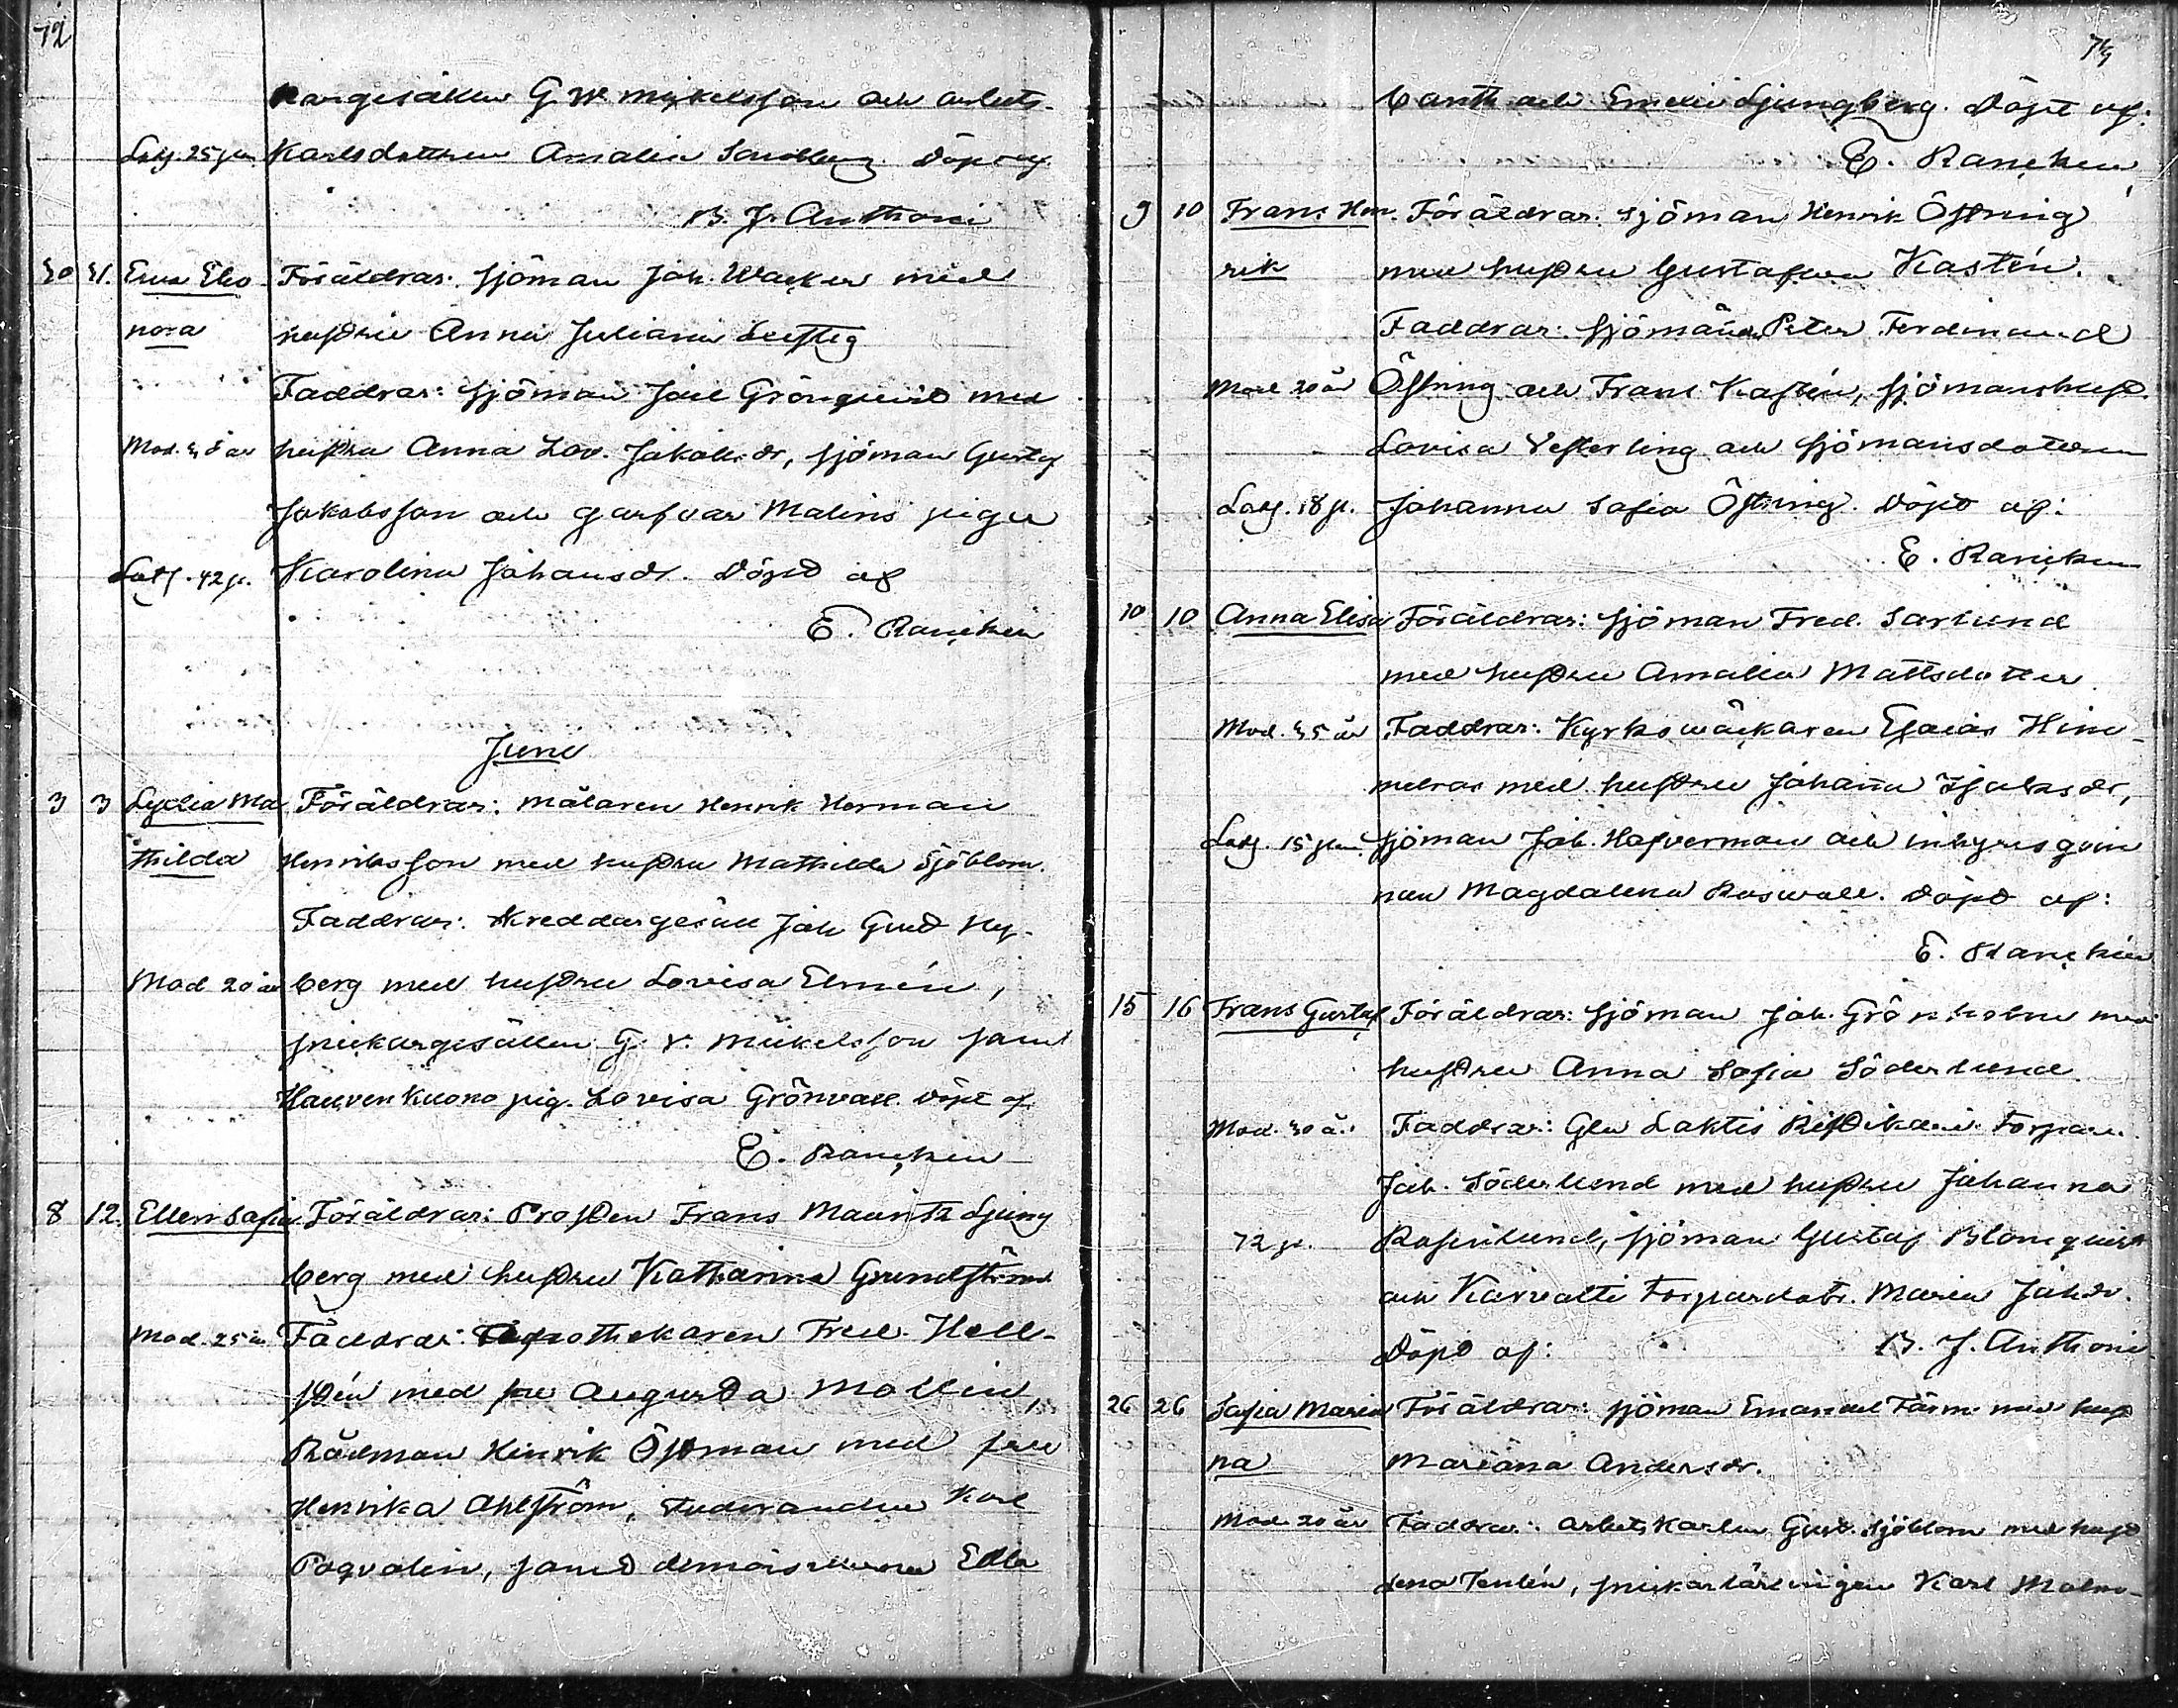 72
kargesällen G. W. Mikelsson och arbets-
Ledg. 25 pen Karlsdottren Amalia Sandberg Döpt af
B. J. Anthoni
30 31. Eva Eleo- Föräldrar: Sjöman Joh. Wacker med
nora hustru Anna Juliana
Faddrar: Sjöman Joel Grönqvist med
Mod. 35 år hustru Anna Lov. Jakobsdr, sjöman Gustaf
Jakobsson och garfvar Malins piga
Ledg. 42 p. Karolina Johansdr. Döpt af
E. Rancken
Juni
3 3 Lydia Ma- Föräldrar: målaren Henrik Herman
thilda Henriksson med hustru Mathilda Sjöblom.
Faddrar: Skreddargesäll Joh Gust Ny-
Mod 20 år berg med hustru Lovisa Elmén,
snickargesällen G. V. Mickelsson samt
Hauvenkuono pig. Lovisa Grönvall. Döpt af
E. Rancken
8 12. Ellen Sofia Föräldrar: Prosten Frans Mauritz Ljung
berg med hustru Katharina Grundström
Mod. 25 år Faddrar: Apothekaren Fred. Hell-
stén med fru Augusta Mollin,
Rådman Henrik Östman med fru
Henrika Ahlström, Studeranden Karl
Poqvolin, samt demoisellerna Edla
73
Canth och Emelie Ljungberg. Döpt af:
E. Rancken
9 10 Frans Hen- Föräldrar: Sjöman Henrik Östring
rik med hustru Gustafva Kastén.
Faddrar: Sjömännen Peter Ferdinand
Mod 20 år Östring och Frans Kastén, sjömanshust.
Lovisa Vesterling och Sjömansdottren
Ledg. 18 p. Johanna Sofia Östring. Döpt af:
E. Rancken
10 10 Anna Elisa Föräldrar: Sjöman Fred. Sarlund
med hustru Amalia Mattsdotter
Mod. 35 år Faddrar: Kyrkowäckaren Esaias Him-
melroos med hustru Johanna
Ledg. 15 pen Sjöman Joh. Hafverman och inhyresqvin
nan Magdalena Roswall. Döpt af:
E. Rancken
15 16 Frans Gustaf Föräldrar: Sjöman Joh. Grönholm med
hustru Anna Sofia Söderlund
Mod. 30 år Faddrar:
Joh. Söderlund med hustru Johanna
72 p. Rosenlund, sjöman Gustaf Blomqvist
och Karvatti Torpardotr. Maria Johdr.
Döpt af: B. J. Anthoni
26 26 Sofia Maria Föräldrar: Sjöman Emanuel Färm med hust
na Mariana Andersdr.
Mod 20 år Faddrar: arbetskarlen Gust. Sjöblom med hust
Lena Tenlén, snickarlärlingen Karl Malm-